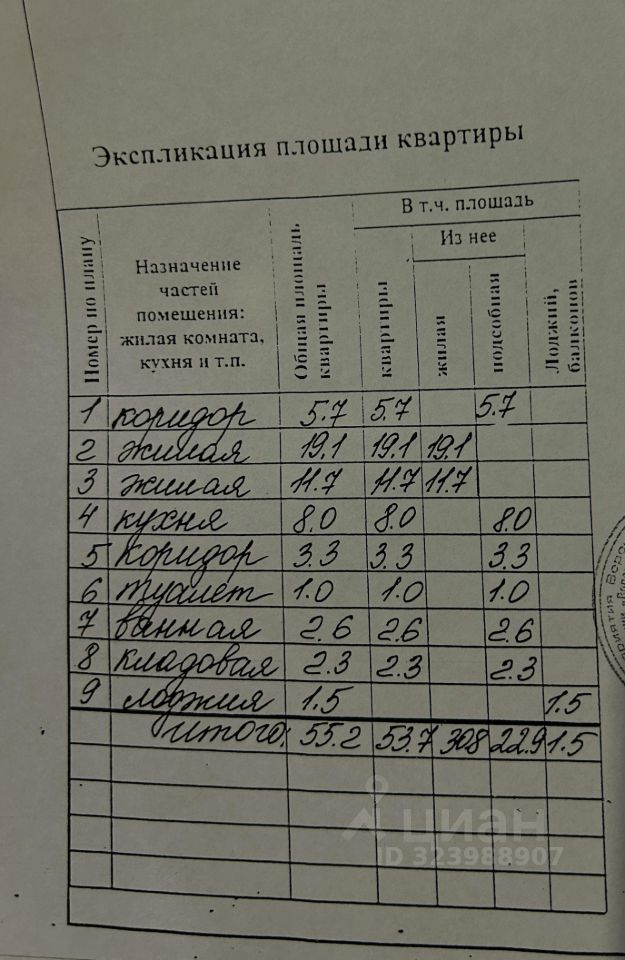 Экспликация площади квартиры
Номер по плану
Назначение
частей
помещения:
жилая комната,
кухня и т.п.
Общая площадь
квартиры
В т.ч. площадь
квартиры
Из нее
жилая
подсобная
Лоджий,
балконов
1 коридор 5.7 5.7 5.7
2 жилая 19.1 19.1 19.1
3 жилая 11.7 11.7 11.7
4 кухня 8.0 8.0 8.0
5 коридор 3.3 3.3 3.3
6 туалет 1.0 1.0 1.0
7 ванная 2.6 2.6 2.6
8 кладовая 2.3 2.3 2.3
9 лоджия 1.5 1.5
итого: 55.2 53.7 30.8 22.9 1.5
циан
ID 323988907